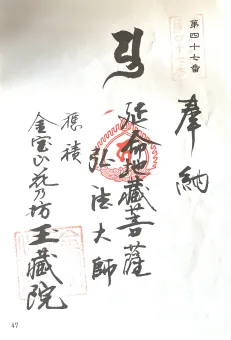 第四十七番
奉納
延命地蔵菩薩
弘法大師
金宝山花乃坊
玉蔵院
47